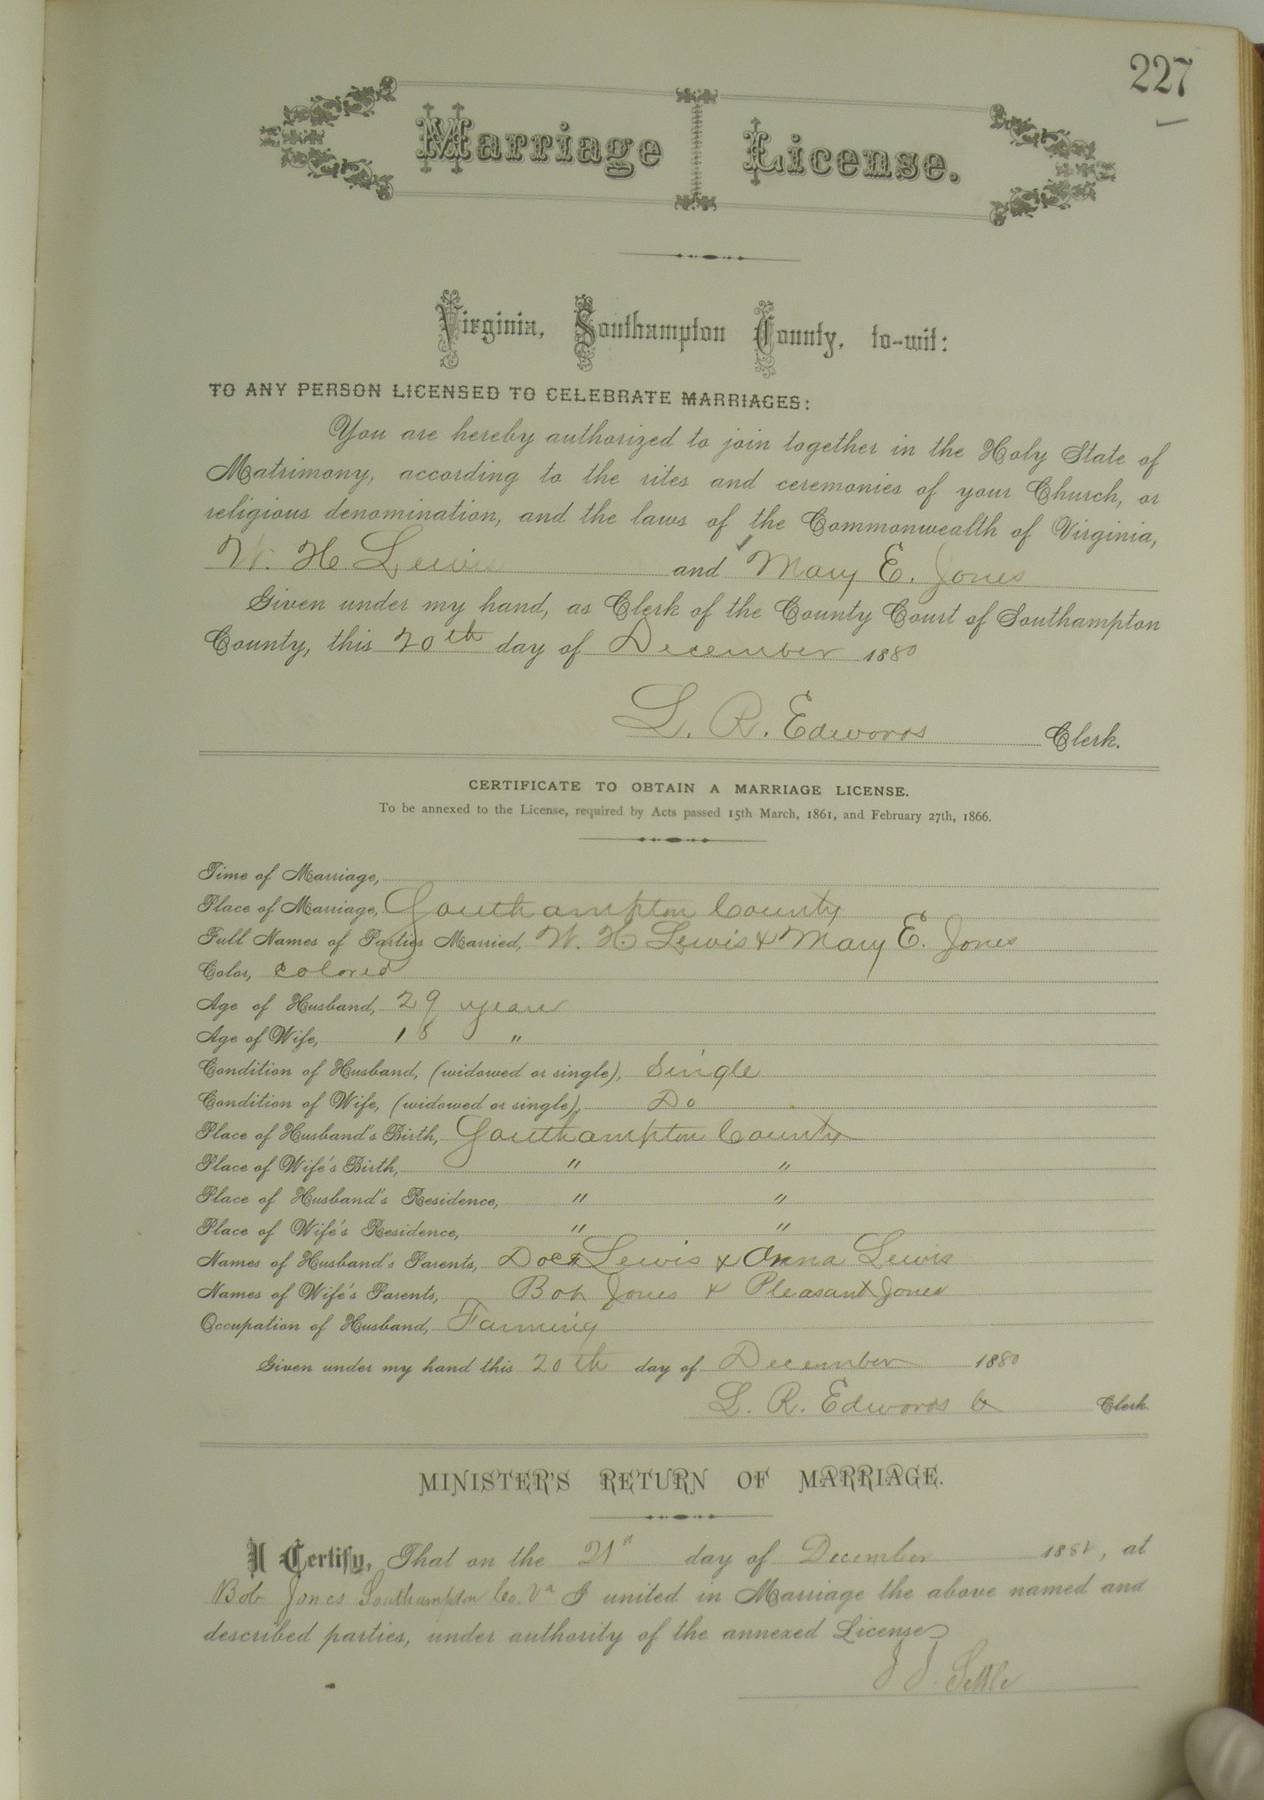 227
Marriage License.
Virginia, Southampton County, to-wit:
TO ANY PERSON LICENSED TO CELEBRATE MARRIAGES:
You are hereby authorized to join together in the Holy State of
Matrimony, according to the rites and ceremonies of your Church, or
religious denomination, and the laws of the Commonwealth of Virginia,
W. H Lewis and Mary E. Jones
Given under my hand, as Clerk of the County Court of Southampton
County, this 20th day of December 1880
L. R. Edwards Clerk.
CERTIFICATE TO OBTAIN A MARRIAGE LICENSE.
To be annexed to the License, required by Acts passed 15th March, 1861, and February 27th, 1866.
Time of Marriage,
Place of Marriage, Southampton County
Full Names of Parties Married, W. H Lewis & Mary E. Jones
Color, Colored
Age of Husband, 29 years
Age of Wife, 18 "
Condition of Husband, (widowed or single), Single
Condition of Wife, (widowed or single), Do
Place of Husband's Birth, Southampton County
Place of Wife's Birth, " "
Place of Husband's Residence, " "
Place of Wife's Residence, " "
Names of Husband's Parents, Lewis & Anna Lewis
Names of Wife's Parents, Bob Jones & Pleasant Jones
Occupation of Husband, Farming
Given under my hand this 20th day of December 1880
L. R. Edwards Clerk
MINISTER'S RETURN OF MARRIAGE.
I Certify, That on the 21st day of December, at
Bob Jones Southampton Co. Va I united in Marriage the above named and
described parties, under authority of the annexed License
J J Settle